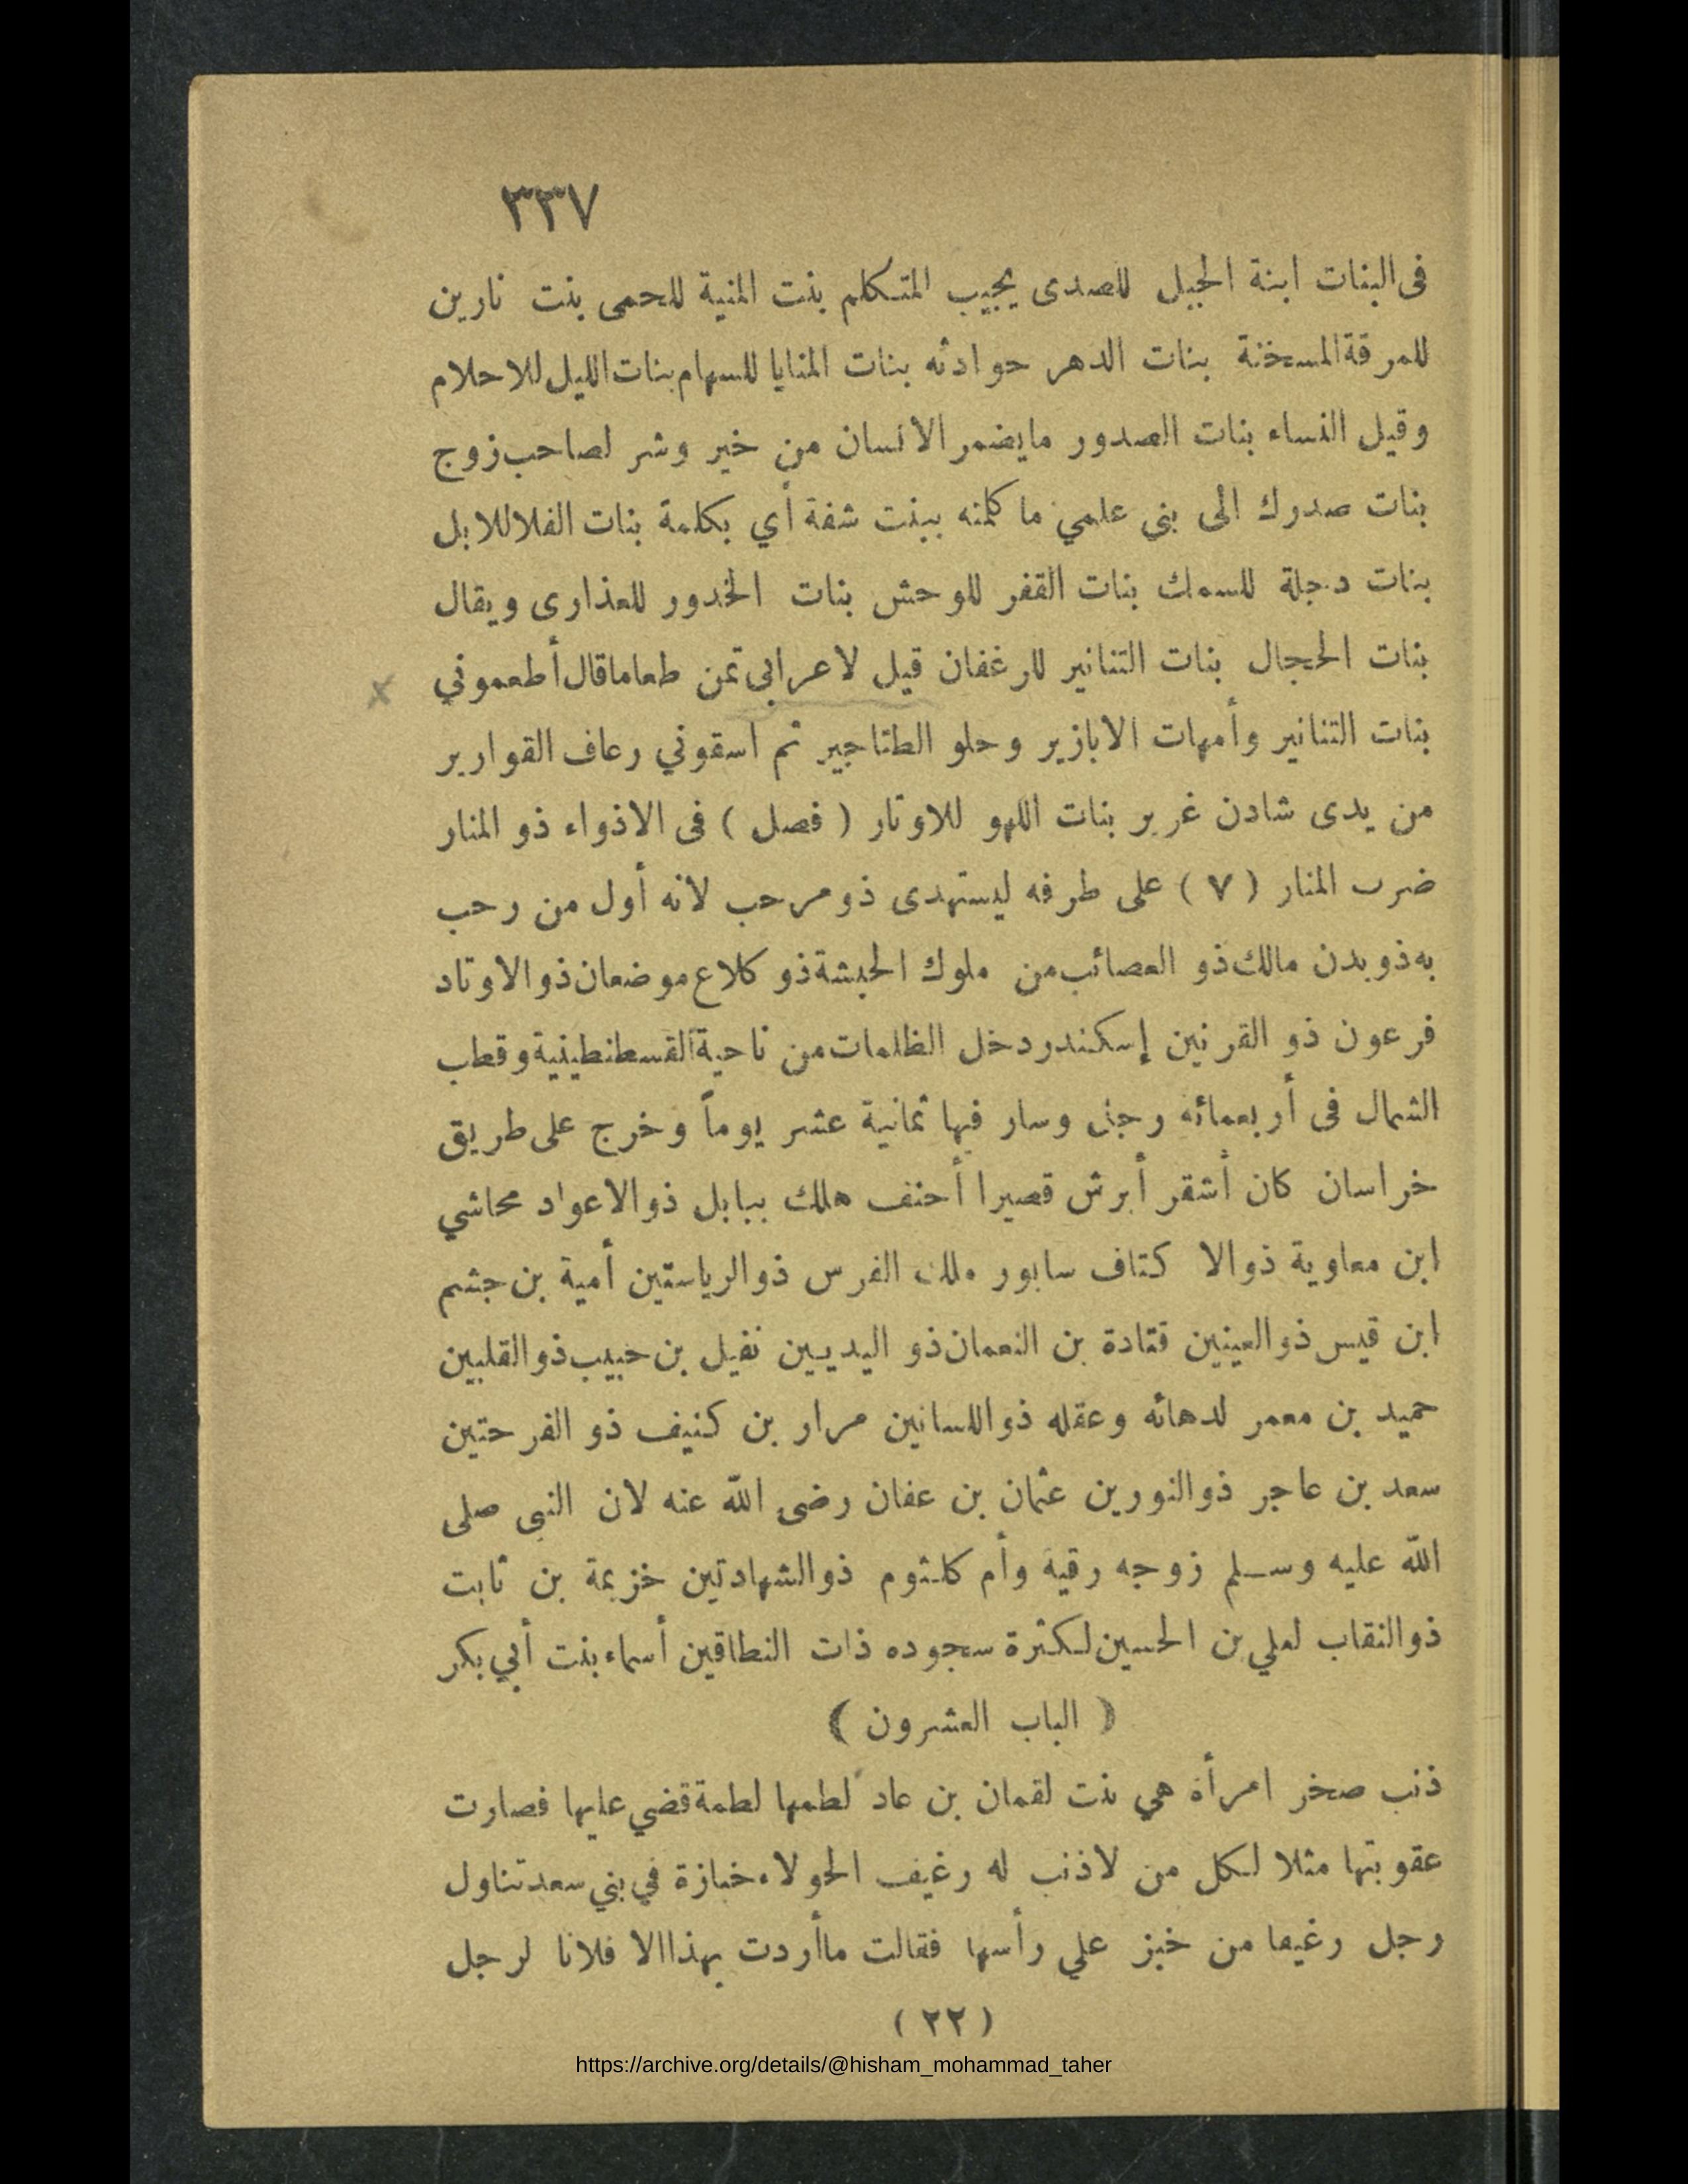 ٣٣٧
فى البنات ابنة الجبل للصدى يجيب المتكلم بنت المنية للحمى بنت نارين
للمرقة المسخنة بنات الدهر حوادثه بنات المنايا للسهام بنات الليل للاحلام
وقيل النساء بنات الصدور مايضمر الانسان من خير وشر لصاحب زوج
بنات صدرك الى بنى علمي ما كلمته ببنت شفة أي بكلمة بنات الفلا للابل
بنات دجلة للسمك بنات القفر للوحش بنات الخدور للعذارى ويقال
بنات الحجال بنات التنانير للرغفان قيل لاعرابى تمن طعاما قال أطعموني
بنات التنانير وأمهات الابازير وحلو الطناجير ثم اسقوني رعاف القوارير
من يدى شادن غرير بنات اللهو للاوتار ( فصل ) فى الاذواء ذو المنار
ضرب المنار ( ٧ ) على طرفه ليستهدى ذو مرحب لانه أول من رحب
به ذو بدن مالك ذو العصائب من ملوك الحبشة ذو كلاع موضعان ذو الاوتاد
فرعون ذو القرنين إسكندر دخل الظلمات من ناحية القسطنطينية وقطب
الشمال فى أربعمائه رجل وسار فيها ثمانية عشر يوماً وخرج على طريق
خراسان كان أشقر أبرش قصيرا أحنف هلك ببابل ذو الاعواد محاشي
ابن معاوية ذوالا كتاف سابور ملك الفرس ذوالرياستين أمية بن جشم
ابن قيس ذوالعينين قتادة بن النعمان ذو اليديين نفيل بن حبيب ذو القلبين
حميد بن معمر لدهائه وعقله ذواللسانين مرار بن كنيف ذو الفرحتين
سعد بن عاجر ذوالنورين عثمان بن عفان رضى الله عنه لان النبى صلى
الله عليه وسلم زوجه رقية وأم كلثوم ذوالشهادتين خزيمة بن ثابت
ذوالنقاب لعلي بن الحسين لكثرة سجوده ذات النطاقين أسماء بنت أبي بكر
( الباب العشرون )
ذنب صخر امرأة هي بنت لقمان بن عاد لطمها لطمة قضي عليها فصارت
عقوبتها مثلا لكل من لاذنب له رغيف الحولاء خبازة في بني سعد تناول
رجل رغيفا من خبز علي رأسها فقالت ماأردت بهذا الا فلانا لرجل
( ٢٢ )
https://archive.org/details/@hisham_mohammad_taher